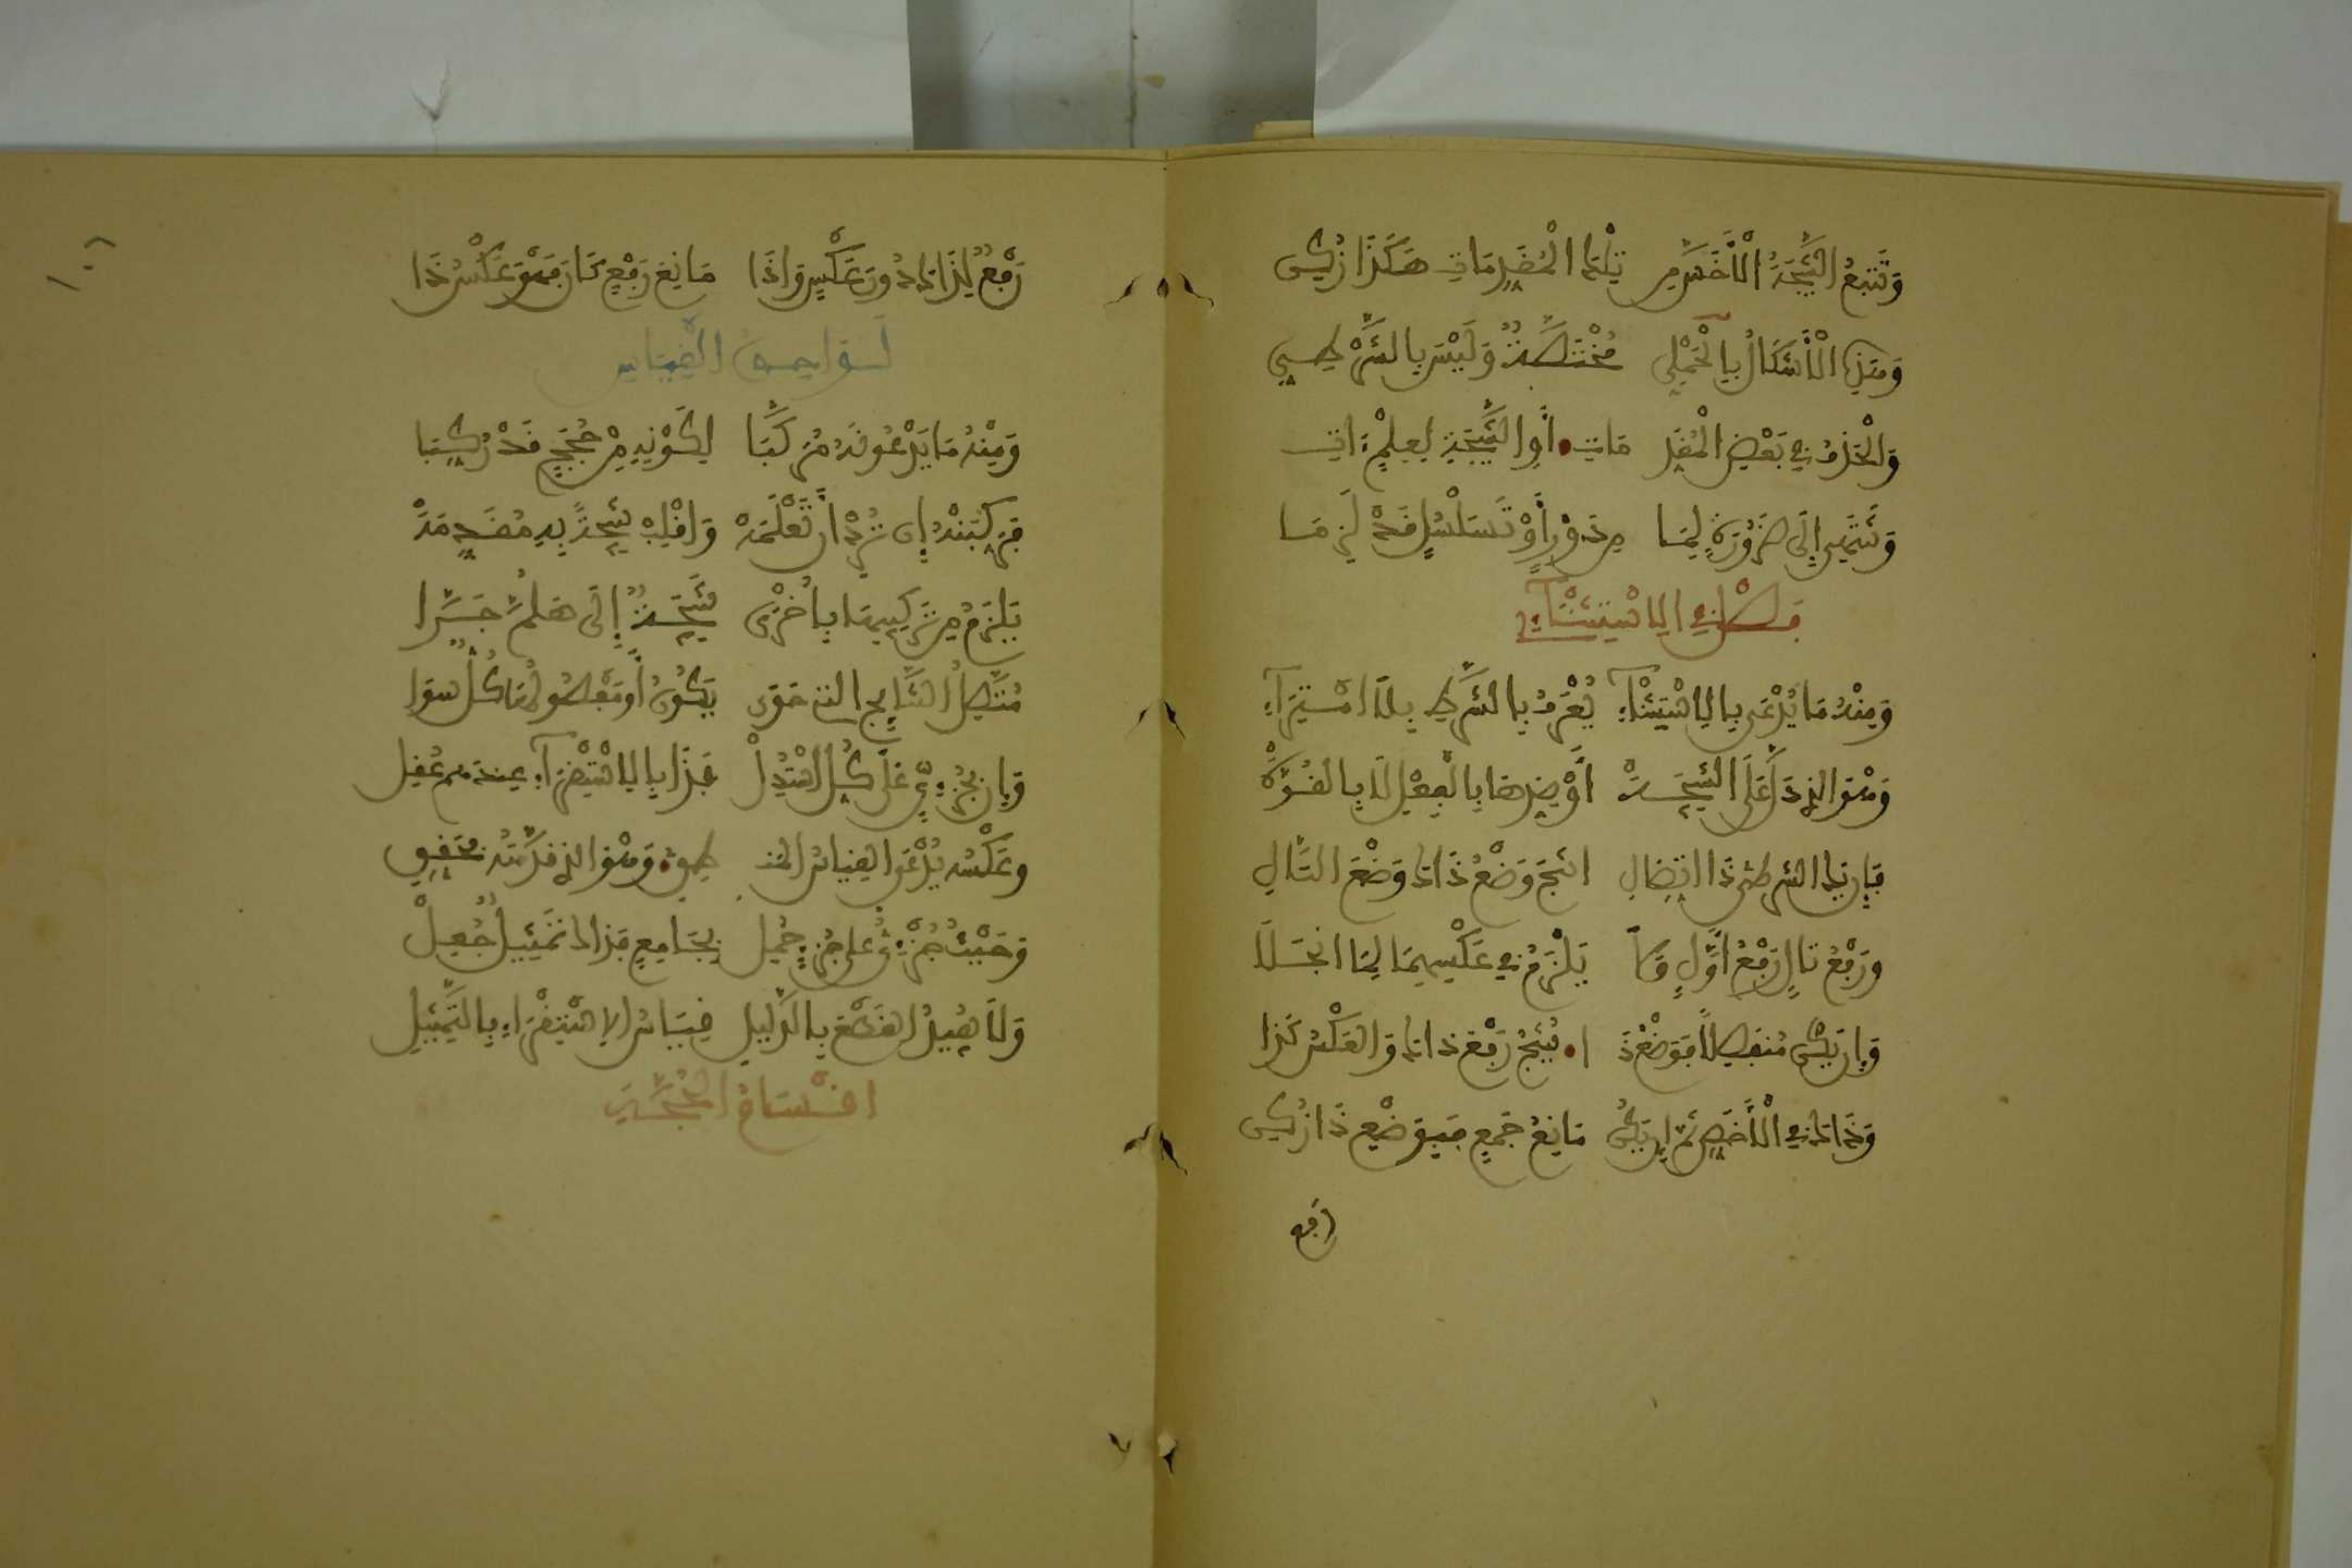 وَتَتْبَعُ النَّتِيجَةُ الْأَخَسَّ مِن تِلْكَ الْمُقَدِّمَاتِ هَكَذَا زُكِنْ
وَهَذِهِ الْأَشْكَالُ بِالْحَمْلِي مُخْتَصَّةٌ وَلَيْسَ بِالشَّرْطِي
وَالْحَذْفُ فِي بَعْضِ الْمُقَدِّ مَاتِ أَوِ النَّتِيجَةِ لِعِلْمٍ ءَاتِ
وَتَنْتَهِي إِلَى ضَرُورَةٍ لِمَا مِن دَوْرٍ أَوْ تَسَلْسُلٍ قَدْ لَزِمَا
فَصْلٌ فِي الِاسْتِثْنَآءِ
وَمِنْهُ مَا يُدْعَى بِالِاسْتِثْنَآءِ يُعْرَفُ بِالشَّرْطِ بِلَا امْتِرَآءِ
وَهْوَ الذِي دَلَّ عَلَى النَّتِيجَةْ أَوْ ضِدِّهَا بِالْفِعْلِ لَا بِالْقُوَّةْ
فَإِن يَكُ الشَّرْطِيُّ ذَا اتِّصَالِ انْتَجَ وَضْعُ ذَاكَ وَضْعَ التَّالِ
وَرَفْعُ تَالٍ رَفْعُ أَوَّلٍ وَلَا يَلْزَمُ فِي عَكْسِهِمَا لِمَا انْجَلَا
وَإِن يَكُنْ مُنْفَصِلًا فَوَضْعُ ذَ ا يُنْتِجُ رَفْعَ ذَاكَ وَالْعَكْسُ كَذَا
وَذَاكَ فِي الْأَخَصِّ ثُمَّ إِن يَكُنْ مَانِعُ جَمْعٍ فَبِوَضْعِ ذَا زُكِنْ
رفع
١٠٦
رَفْعٌ لِذَاكَ دُونَ عَكْسٍ وَإِذَا مَانِعَ رَفْعٍ كَانَ فَهْوَ عَكْسُ ذَا
لَوَاحِقُ الْقِيَاسِ
وَمِنْهُ مَا يَدْعُونَهُ مُرَكَّبَا لِكَوْنِهِ مِنْ حُجَجٍ قَدْ رُكِّبَا
فَرَكِّبَنْهُ إِن تُرِدْ أَن تَعْلَمَهْ وَاقْلِبْ نَتِيجَةً بِهِ مُقَدِّمَهْ
يَلْزَمُ مِن تَرْكِيبِهَا بِأُخْرَى نَتِيجَةٌ إِلَى هَلُمَّ جَرَّا
مُتَّصِلُ النَّتَائِجِ الذِي حَوَى يَكُونُ أَوْ مَفْصُولُهَا كُلٌّ سَوَا
وَإِن بِجُزْئِيٍّ عَلَى كُلِّ اسْتُدِلْ فَذَا بِالِاسْتِقْرَآءِ عِنْدَهُمْ عُقِلْ
وَعَكْسُهُ يُدْعَى الْقِيَاسُ الْمَنْ طِقِي وَهْوَ الذِي قَدَّمْتُهُ فَحَقِّقِ
وَحَيْثُ جُزْئِيٌّ عَلَى جُزْيٍ حُمِلْ بِجَامِعٍ فَذَاكَ تَمْثِيلٌ جُعِلْ
وَلَا يُفِيدُ الْقَطْعَ بِالدَّلِيلِ قِيَاسُ الِاسْتِقْرَاءِ بِالتَّمْثِيلِ
اقْسَامُ الْحُجَّةِ